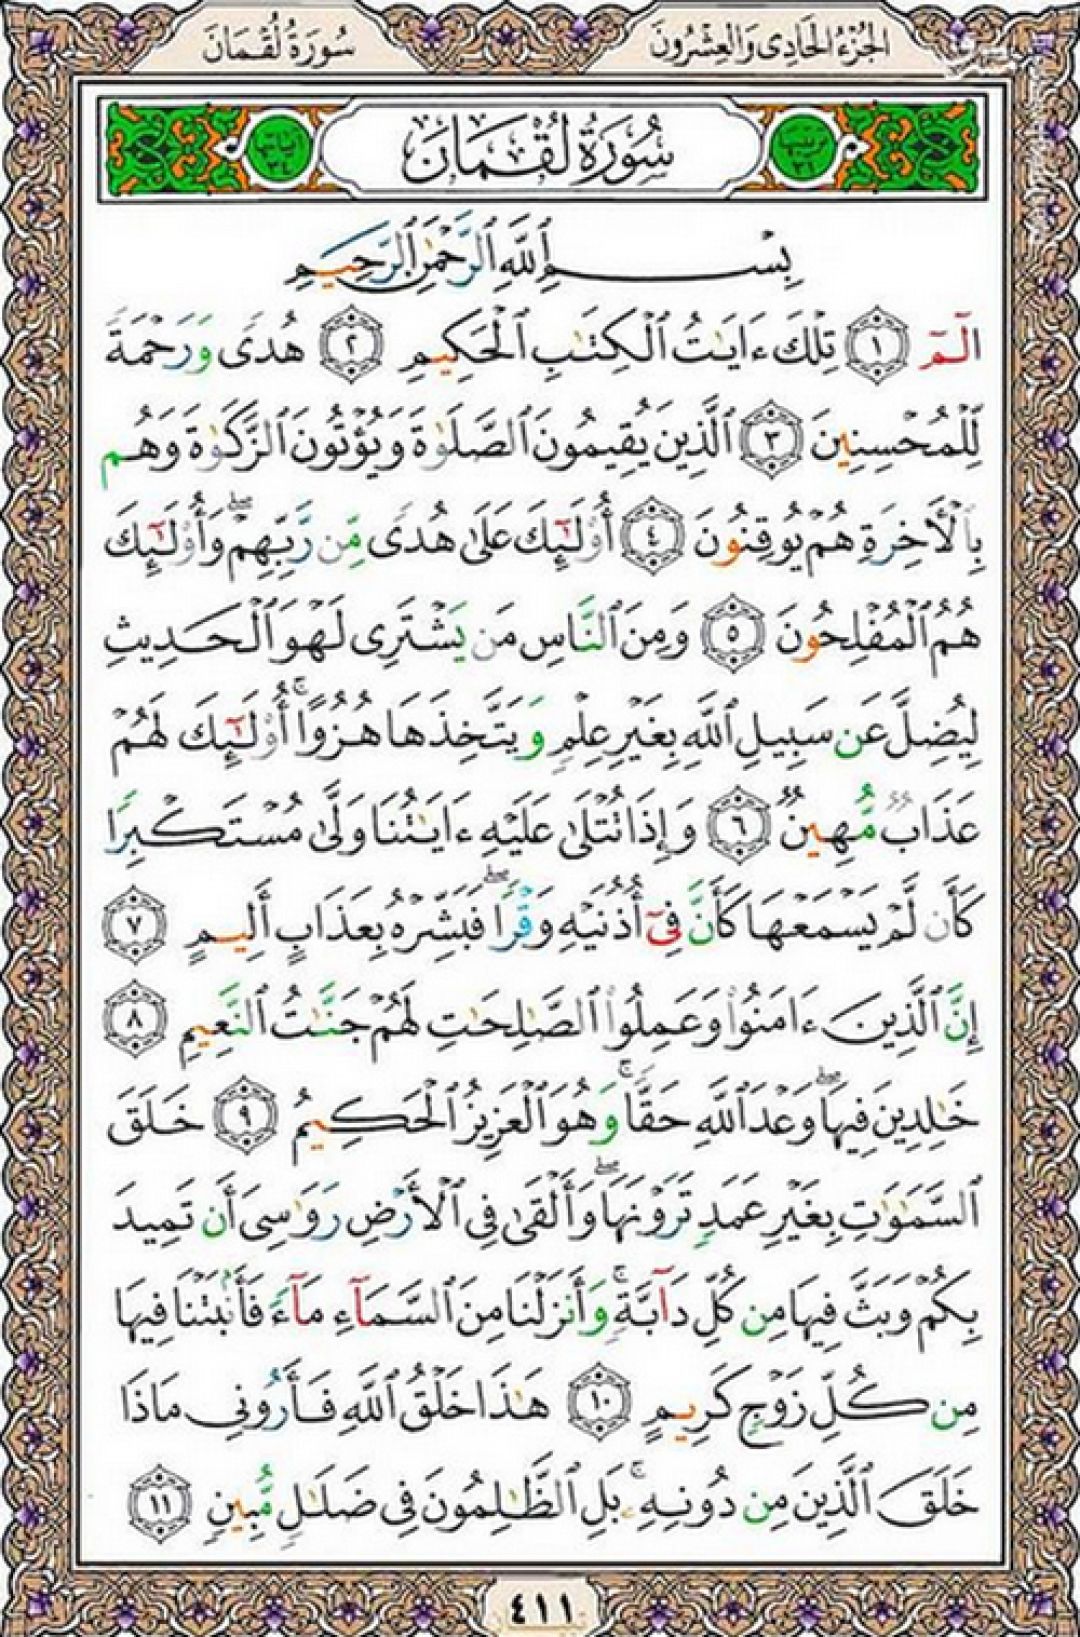 الجزء الحادي والعشرون
سورة لقمان
سُورَةُ لُقْمَانَ
بِسْمِ ٱللَّهِ ٱلرَّحْمَٰنِ ٱلرَّحِيمِ
الٓمٓ ١ تِلْكَ ءَايَٰتُ ٱلْكِتَٰبِ ٱلْحَكِيمِ ٢ هُدًى وَرَحْمَةً
لِّلْمُحْسِنِينَ ٣ ٱلَّذِينَ يُقِيمُونَ ٱلصَّلَوٰةَ وَيُؤْتُونَ ٱلزَّكَوٰةَ وَهُم
بِٱلْأٓخِرَةِ هُمْ يُوقِنُونَ ٤ أُو۟لَٰٓئِكَ عَلَىٰ هُدًى مِّن رَّبِّهِمْ ۖ وَأُو۟لَٰٓئِكَ
هُمُ ٱلْمُفْلِحُونَ ٥ وَمِنَ ٱلنَّاسِ مَن يَشْتَرِى لَهْوَ ٱلْحَدِيثِ
لِيُضِلَّ عَن سَبِيلِ ٱللَّهِ بِغَيْرِ عِلْمٍ وَيَتَّخِذَهَا هُزُوًا ۚ أُو۟لَٰٓئِكَ لَهُمْ
عَذَابٌ مُّهِينٌ ٦ وَإِذَا تُتْلَىٰ عَلَيْهِ ءَايَٰتُنَا وَلَّىٰ مُسْتَكْبِرًا
كَأَن لَّمْ يَسْمَعْهَا كَأَنَّ فِىٓ أُذُنَيْهِ وَقْرًا ۖ فَبَشِّرْهُ بِعَذَابٍ أَلِيمٍ ٧
إِنَّ ٱلَّذِينَ ءَامَنُوا۟ وَعَمِلُوا۟ ٱلصَّٰلِحَٰتِ لَهُمْ جَنَّٰتُ ٱلنَّعِيمِ ٨
خَٰلِدِينَ فِيهَا ۖ وَعْدَ ٱللَّهِ حَقًّا ۚ وَهُوَ ٱلْعَزِيزُ ٱلْحَكِيمُ ٩ خَلَقَ
ٱلسَّمَٰوَٰتِ بِغَيْرِ عَمَدٍ تَرَوْنَهَا ۖ وَأَلْقَىٰ فِى ٱلْأَرْضِ رَوَٰسِىَ أَن تَمِيدَ
بِكُمْ وَبَثَّ فِيهَا مِن كُلِّ دَآبَّةٍ ۚ وَأَنزَلْنَا مِنَ ٱلسَّمَآءِ مَآءً فَأَنۢبَتْنَا فِيهَا
مِن كُلِّ زَوْجٍ كَرِيمٍ ١٠ هَٰذَا خَلْقُ ٱللَّهِ فَأَرُونِى مَاذَا
خَلَقَ ٱلَّذِينَ مِن دُونِهِۦ ۚ بَلِ ٱلظَّٰلِمُونَ فِى ضَلَٰلٍ مُّبِينٍ ١١
٤١١